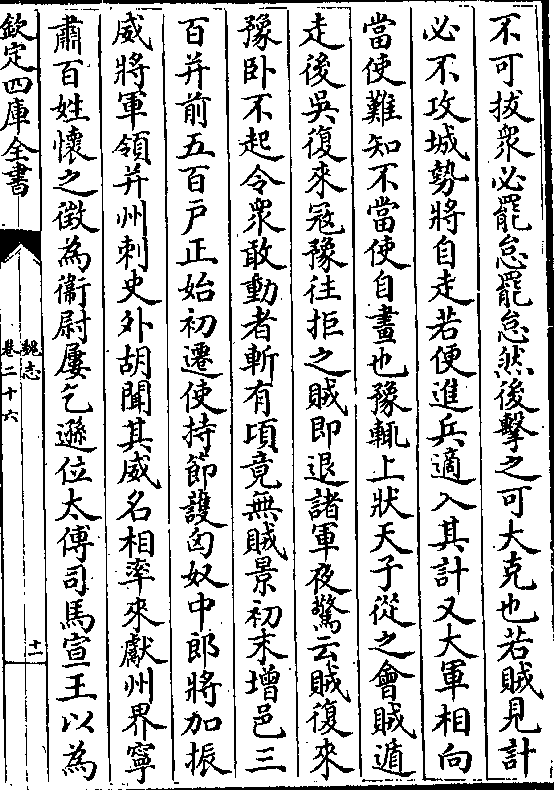 不可拔衆必罷怠罷怠然後擊之可大克也若賊見計
必不攻城勢將自走若便進兵適入其計又大軍相向
當使難知不當使自畫也豫輒上狀天子從之會賊遁
走後吳復來寇豫往拒之賊即退諸軍夜驚云賊復來
豫卧不起令衆敢動者斬有頃竟無賊景初末增邑三
百并前五百戸正始初遷使持節護匈奴中郎將加振
威將軍領并州刺史外胡聞其威名相率來獻州界寧
肅百姓懷之徵為衞尉屢乞遜位太傅司馬宣王以為
欽定四庫全書
魏志
卷二十六
十一